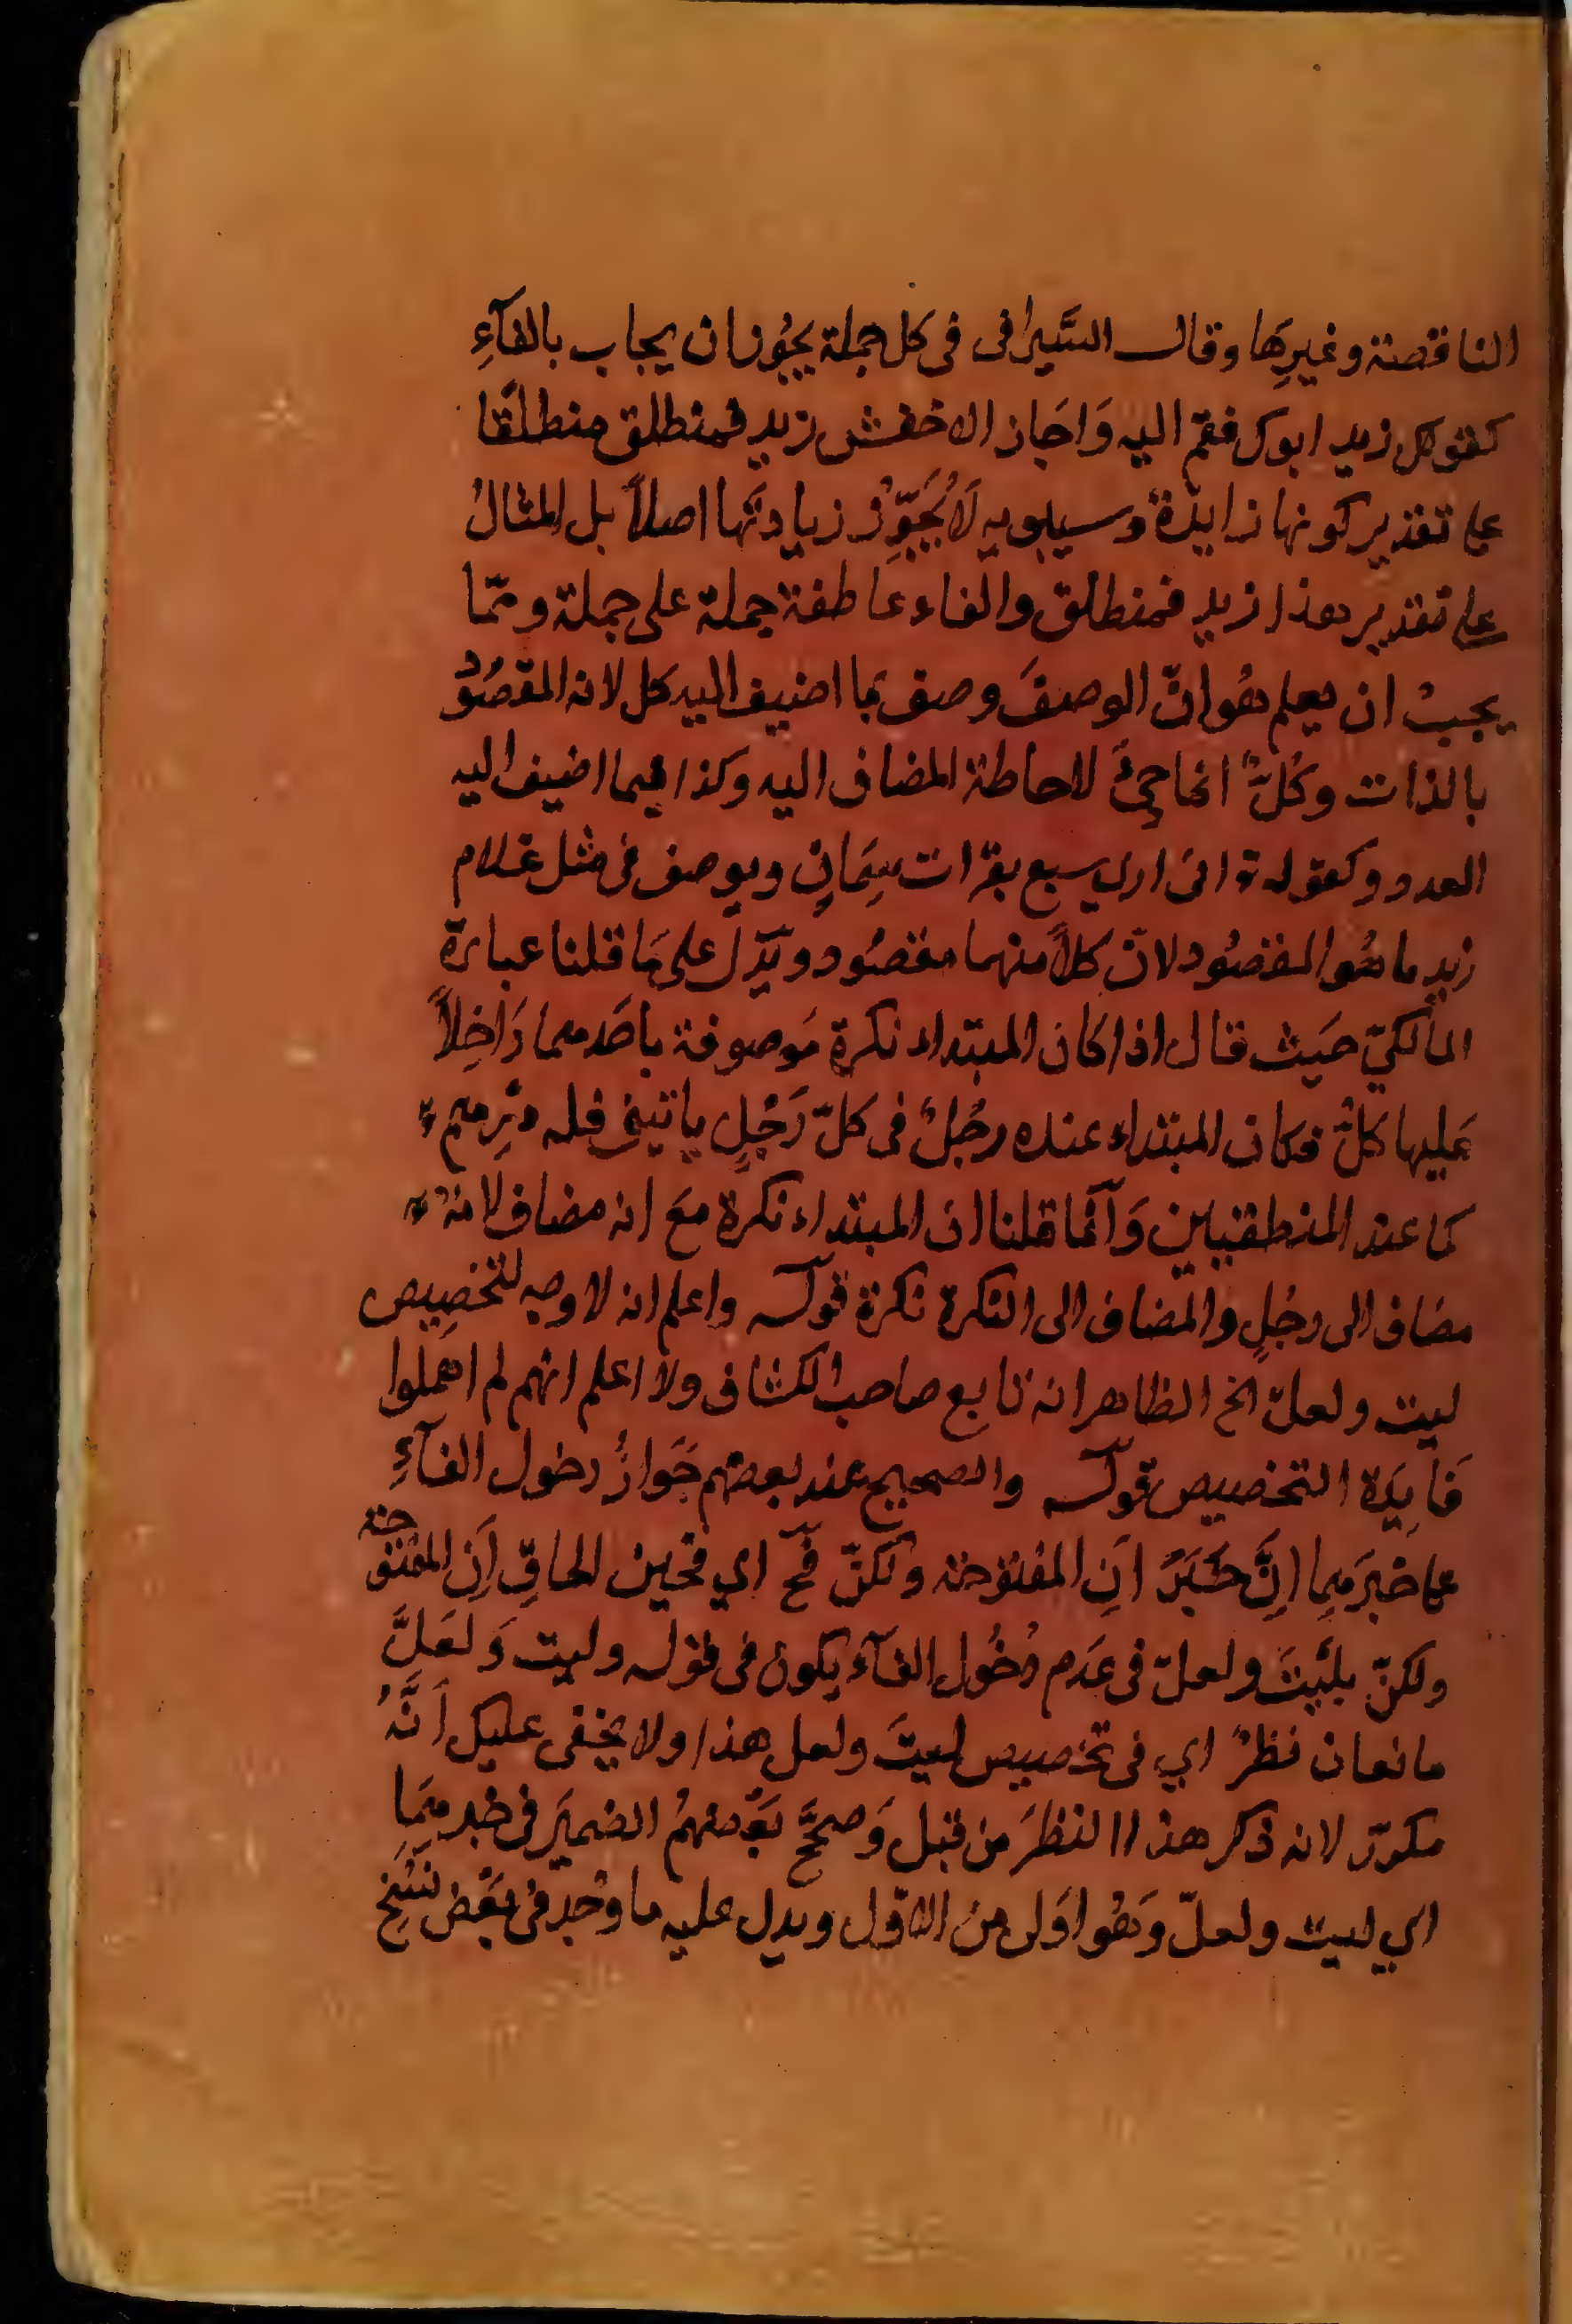 الناقصة وغيرِها وقال السَّيرافى فى كل جملة يجُوز ان يجاب بالفآءِ
كقولك زيد ابوك فقم اليه وَاجَاز الاخفش زيد فمنطلق منطلقًا
على تقدير كونها زايدة وسيبويه لَا يُجَوِّزُ زيادتها اصلاً بل المثالُ
على تقدير هذا زيد فمنطلق والفاء عاطفة جملة على جملة وممّا
يجبُ ان يعلم هُو انّ الوصفَ وصف بما اضيف اليه كل لانه المقصُودُ
بالذات وكُلٌّ انما جِئَ لاحاطة المضاف اليه وكذا فيما اضيف اليه
العدد وكقوله تع انى ارى سبع بقرات سِمَانٍ ويوصف فى مثل غلام
زيد ما هُو المقصُود لانّ كلاًّ منهما مقصُود ويَدُلّ على مَا قلنا عبارة
المالكىّ حَيث قال اذا كان المبتداء نكرة مَوصوفة باحَدهما دَاخِلاً
عَليها كلٌّ فكان المبتداء عنده رجُلٌ فى كلّ رَجُلٍ ياتينى فله دِرهم
كما عند المنطقيين وَانّما قلنا ان المبتداء نكرة مَعَ انه مضاف لانه
مضاف الى رجُلٍ والمضاف الى النكرة نكرة قوله واعلم انه لا وجه لتخصِيص
ليت ولعلّ الخ الظاهر انه تابع صاحب الكشاف ولا اعلم انهم لم اهملوا
فَايِدَة التخصيص قوله والصحيح عند بعضهم جَوازُ دخول الفآءِ
على خبرَيهِما اِنَّ خَبَرَ اَن المفتوحة ولكنّ فح اي فحين الحاقِ اَن المفتوحة
ولكنّ بليْتَ ولعلّ فى عَدَم دُخُول الفآء يكون فى قوله وليت وَلعَلَّ
مانعان نظرٌ اي فى تخصيص ليتَ ولعل هذا ولا يخفى عليك اَنَّهُ
مكرّر لانه ذكر هذا النظرَ من قبل وَصحَّحَ بَعْضهُمُ الضميرَ فى خبريهمَا
اي ليت ولعلّ وَهُو اوَلى من الاوّل ويدل عليه ما وُجد فى بَعْض نُسَخِ